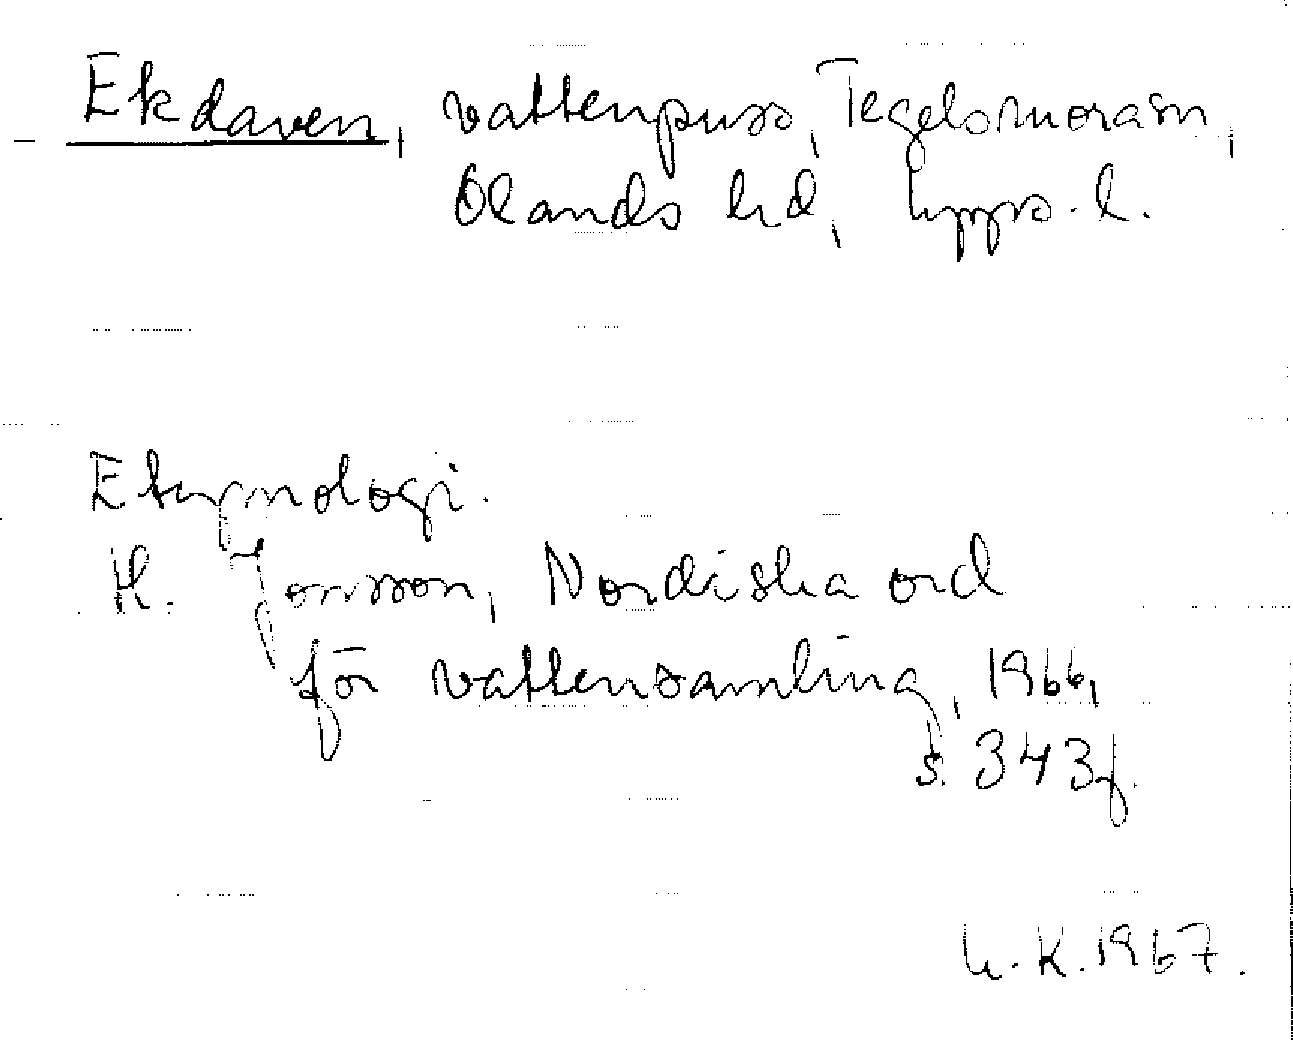 Ekdaven, vattenpuss, Tegelsmora sn,
Olands hd, Upps. l.
Etymologi.
H. Jonsson, Nordiska ord
för vattensamling, 1966,
s. 343f.
U.K. 1967.